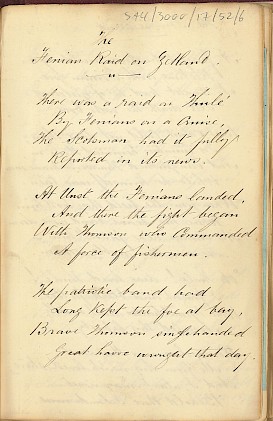 SA4/3000/17/52/6
The
Fenian Raid on Zetland.
There was a raid in Thulé
By Fenians on a Cruise,
The Scotsman had it fully
Reported in its news.
At Unst the Fenians landed,
And there the fight began
With Thomson who Commanded
A force of fishermen.
The patriotic band had
Long kept the foe at bay,
Brave Thomson singlehanded
Great havoc wrought that day.